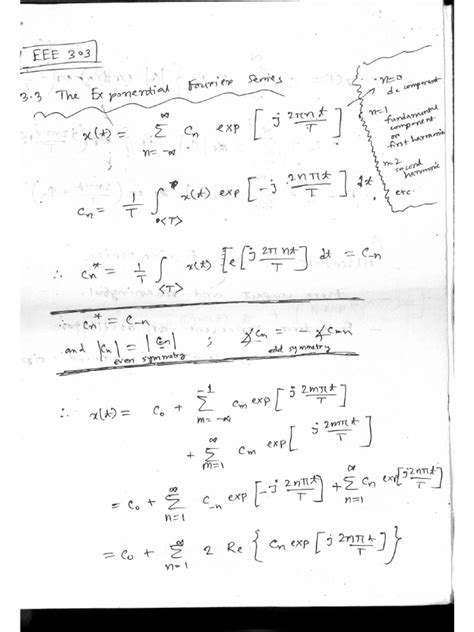 EEE 303
3.3 The Exponential Fourier Series
x(t) = ∞ Σ n=-∞ Cn exp [ j 2πnt/T ]
n=0
dc component
n=1
fundamental
component
or
first harmonic
n=2
second
harmonic
etc.
Cn = 1/T ∫<T> x(t) exp [ -j 2nπt/T ] dt
∴ Cn* = 1/T ∫<T> x(t) [ e [ j 2πnt/T ] dt = C-n
Cn* = C-n
and |Cn| = |C-n| ; ∠Cn = -∠C-n
even symmetry odd symmetry
∴ x(t) = C0 + -1 Σ m=-∞ Cm exp [ j 2mπt/T ]
+ ∞ Σ m=1 Cm exp [ j 2mπt/T ]
= C0 + ∞ Σ n=1 C-n exp [ -j 2nπt/T ] + ∞ Σ n=1 Cn exp [ j2nπt/T ]
= C0 + ∞ Σ n=1 2 Re { Cn exp [ j 2nπt/T ] }